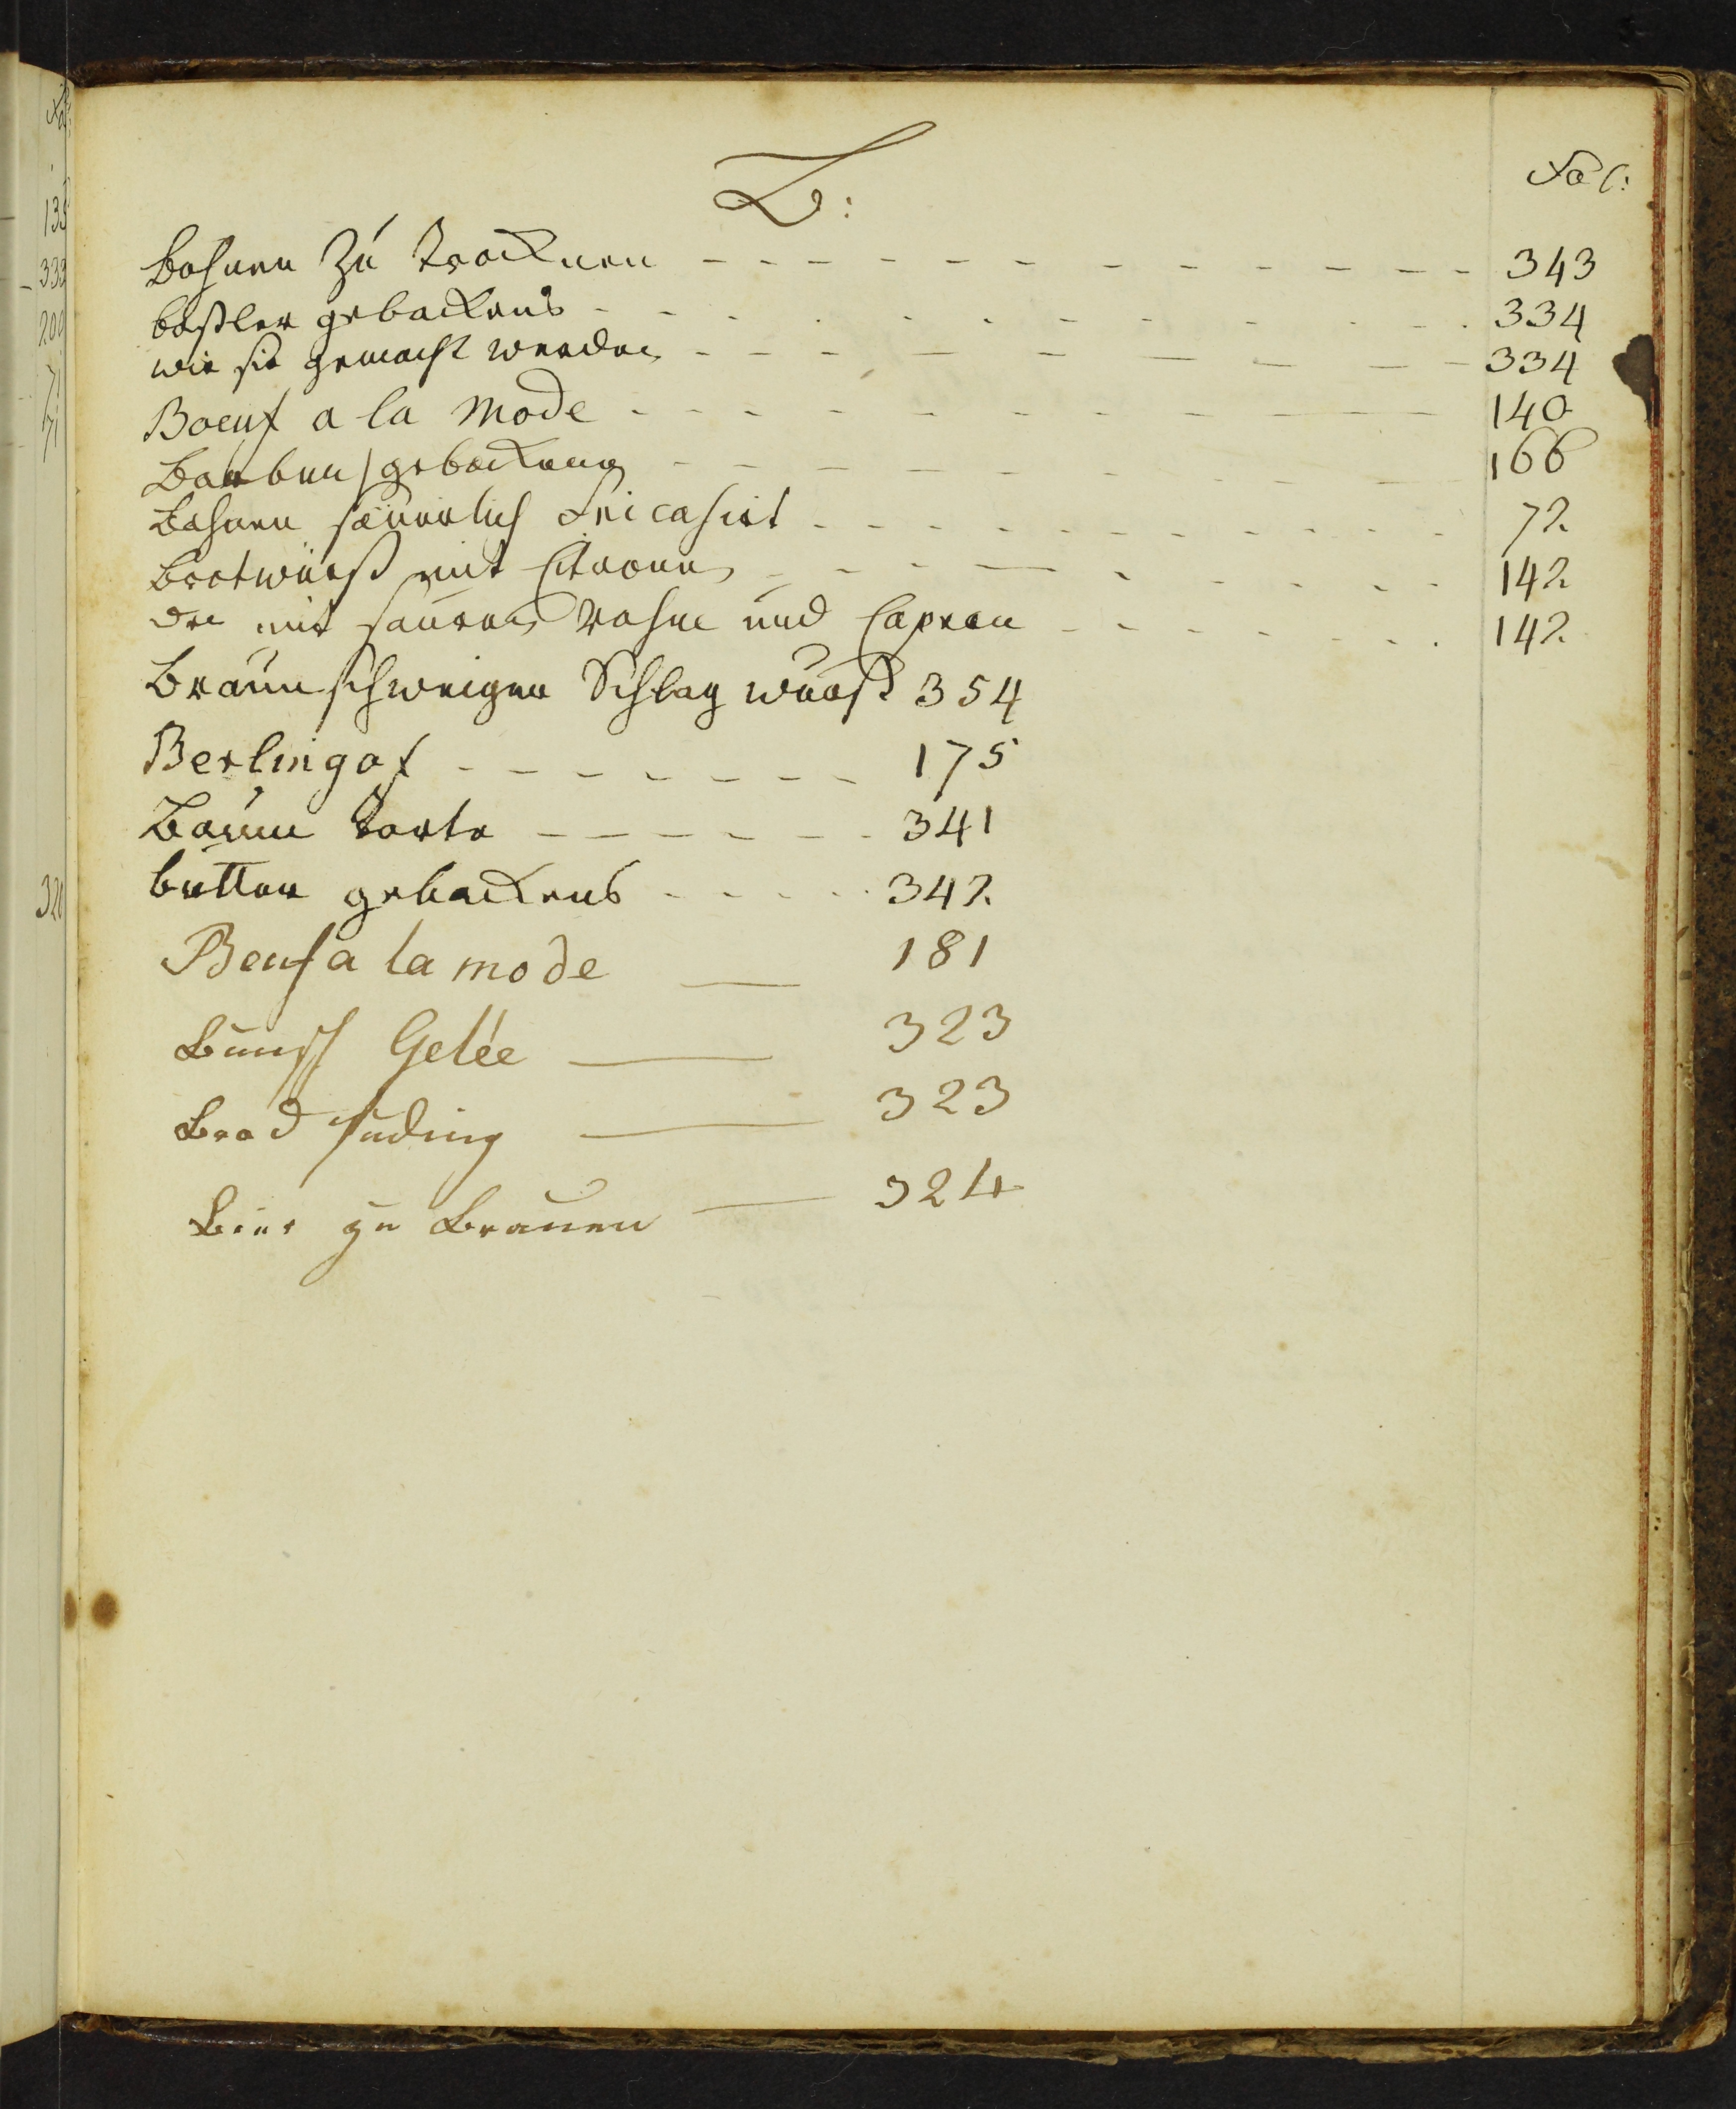 B:
Fol:
Bohnen Zu Trocknen 343
Baßler gebackens 334
wie sie gemacht werden 334
Boeuf a la Mode 140
Barben gebackene 166
Bohnen säuerlich Fricasirt 72
Bratwurst mit Citronen 142
mit sauren Rahm und Capern 142
Braunschweiger Schlag wurst 354
Berlingof 175
Baum Torte 341
butter gebackens 342
Beuf a la mode 181
Bunsch Gelée 323
Brod puding 323
Bier zu Brauen 324
135
333
200
71
71
320